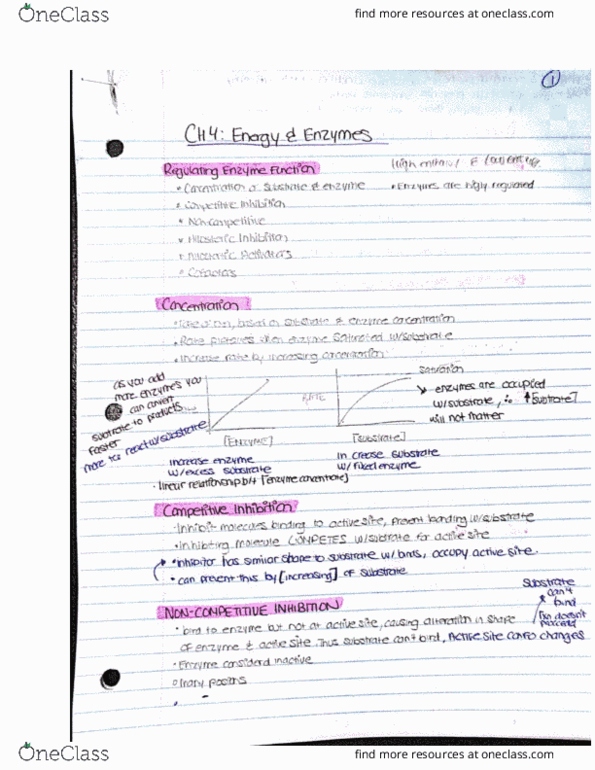 OneClass
find more resources at oneclass.com
1
CH 4: Energy & Enzymes
Regulating Enzyme Function
• Concentration of substrate & enzyme
• Enzymes are highly regulated
• Competitive Inhibition
• Non-competitive
• Allosteric Inhibition
• Allosteric Activators
• Cofactors
Concentration
based on substrate & enzyme concentration
• Rate plateaus when enzyme saturated w/substrate
• Increase rate by increasing concentration
as you add
more enzymes you
can convert
substrate to products
faster
more to react w/substrate
[Enzyme]
increase enzyme
w/ excess substrate
• linear relationship b/t [enzyme concentrate]
RATE
Saturation
[Substrate]
increase substrate
w/ fixed enzyme
enzymes are occupied
w/substrate, ∴ ↑[substrate]
will not matter
Competitive Inhibition
• Inhibit molecules binding to active site, prevent bonding w/substrate
• inhibiting molecule COMPETES w/substrate for active site
• inhibitor has similar shape to substrate occupy active site.
• can prevent this by [increasing] of substrate
Substrate
can't
bind
NON-COMPETITIVE INHIBITION
• bind to enzyme but not at active site, causing alteration in shape
of enzyme & active site. Thus substrate can't bind, Active site changes
• Enzyme considered inactive
OneClass
find more resources at oneclass.com